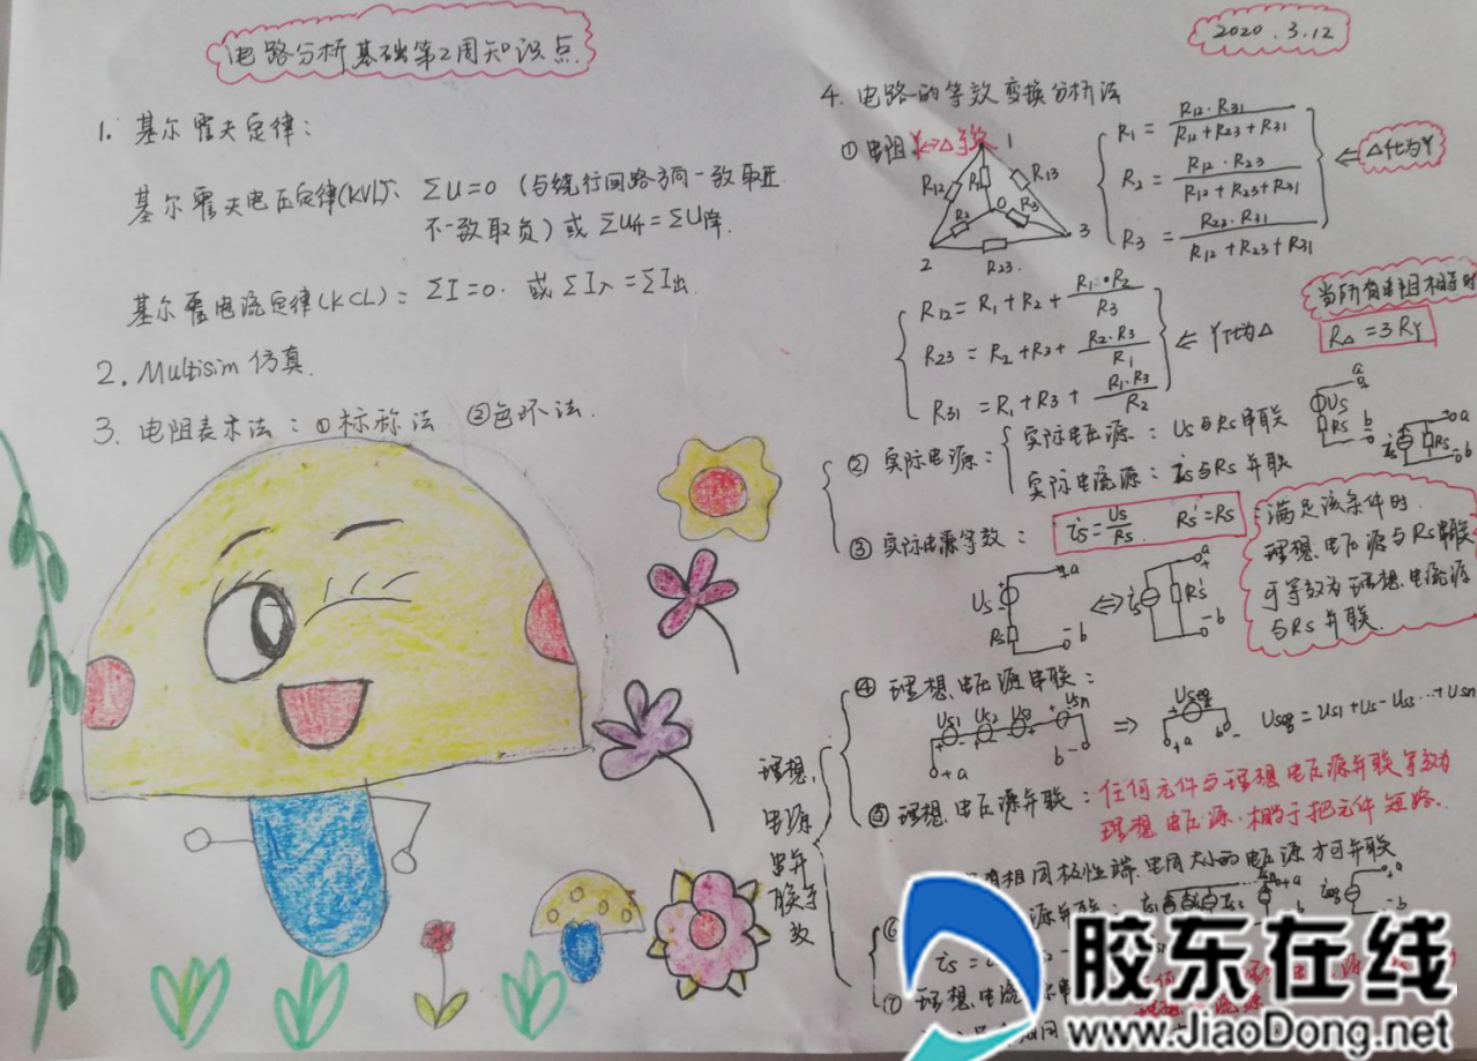 电路分析基础第2周知识点.
2020.3.12
1. 基尔霍夫定律:
基尔霍夫电压定律(KVL): ΣU=0 (与绕行回路方向一致取正
不一致取负) 或 ΣU升=ΣU降.
基尔霍电流定律(KCL): ΣI=0. 或 ΣI入=ΣI出
2. Multisim 仿真.
3. 电阻表示法: ①标称法 ②色环法.
4. 电路的等效变换分析法
①电阻Y⇔△等效
1
R12 R1 R13
O
R2 R3
2 R23. 3
R1 = R12·R31 / R12+R23+R31
R2 = R12·R23 / R12+R23+R31
R3 = R23·R31 / R12+R23+R31
⇐ △化为Y
R12 = R1+R2+ R1·R2 / R3
R23 = R2+R3+ R2·R3 / R1
R31 = R1+R3+ R1·R3 / R2
⇐ Y化为△
当所有电阻相等时
R△=3RY
② 实际电源:
实际电压源: Us与Rs串联
实际电流源: is与Rs并联
a
Us
Rs b
a
is Rs
b
③ 实际电源等效: is=Us/Rs Rs'=Rs
满足该条件时.
理想电压源与Rs串联
可等效为理想电流源
与Rs并联.
+a
Us
Rs
- b
⇔
a
+
is Rs'
- b
理想
电源
串并
联等
效
④ 理想电压源串联:
Us1 Us2 Us3 Usn
+a b-
⇒
Useq
+a b-
Useq=Us1+Us-Us3…+Usn
⑤ 理想电压源并联: 任何元件与理想电压源并联等效为
理想电压源.相当于把元件短路.
有相同极性端.电同大小的电压源才可并联
⑥ 源并联:
+a
b
ieq
a
b
is =
⑦ 理想电流
胶东在线
www.JiaoDong.net